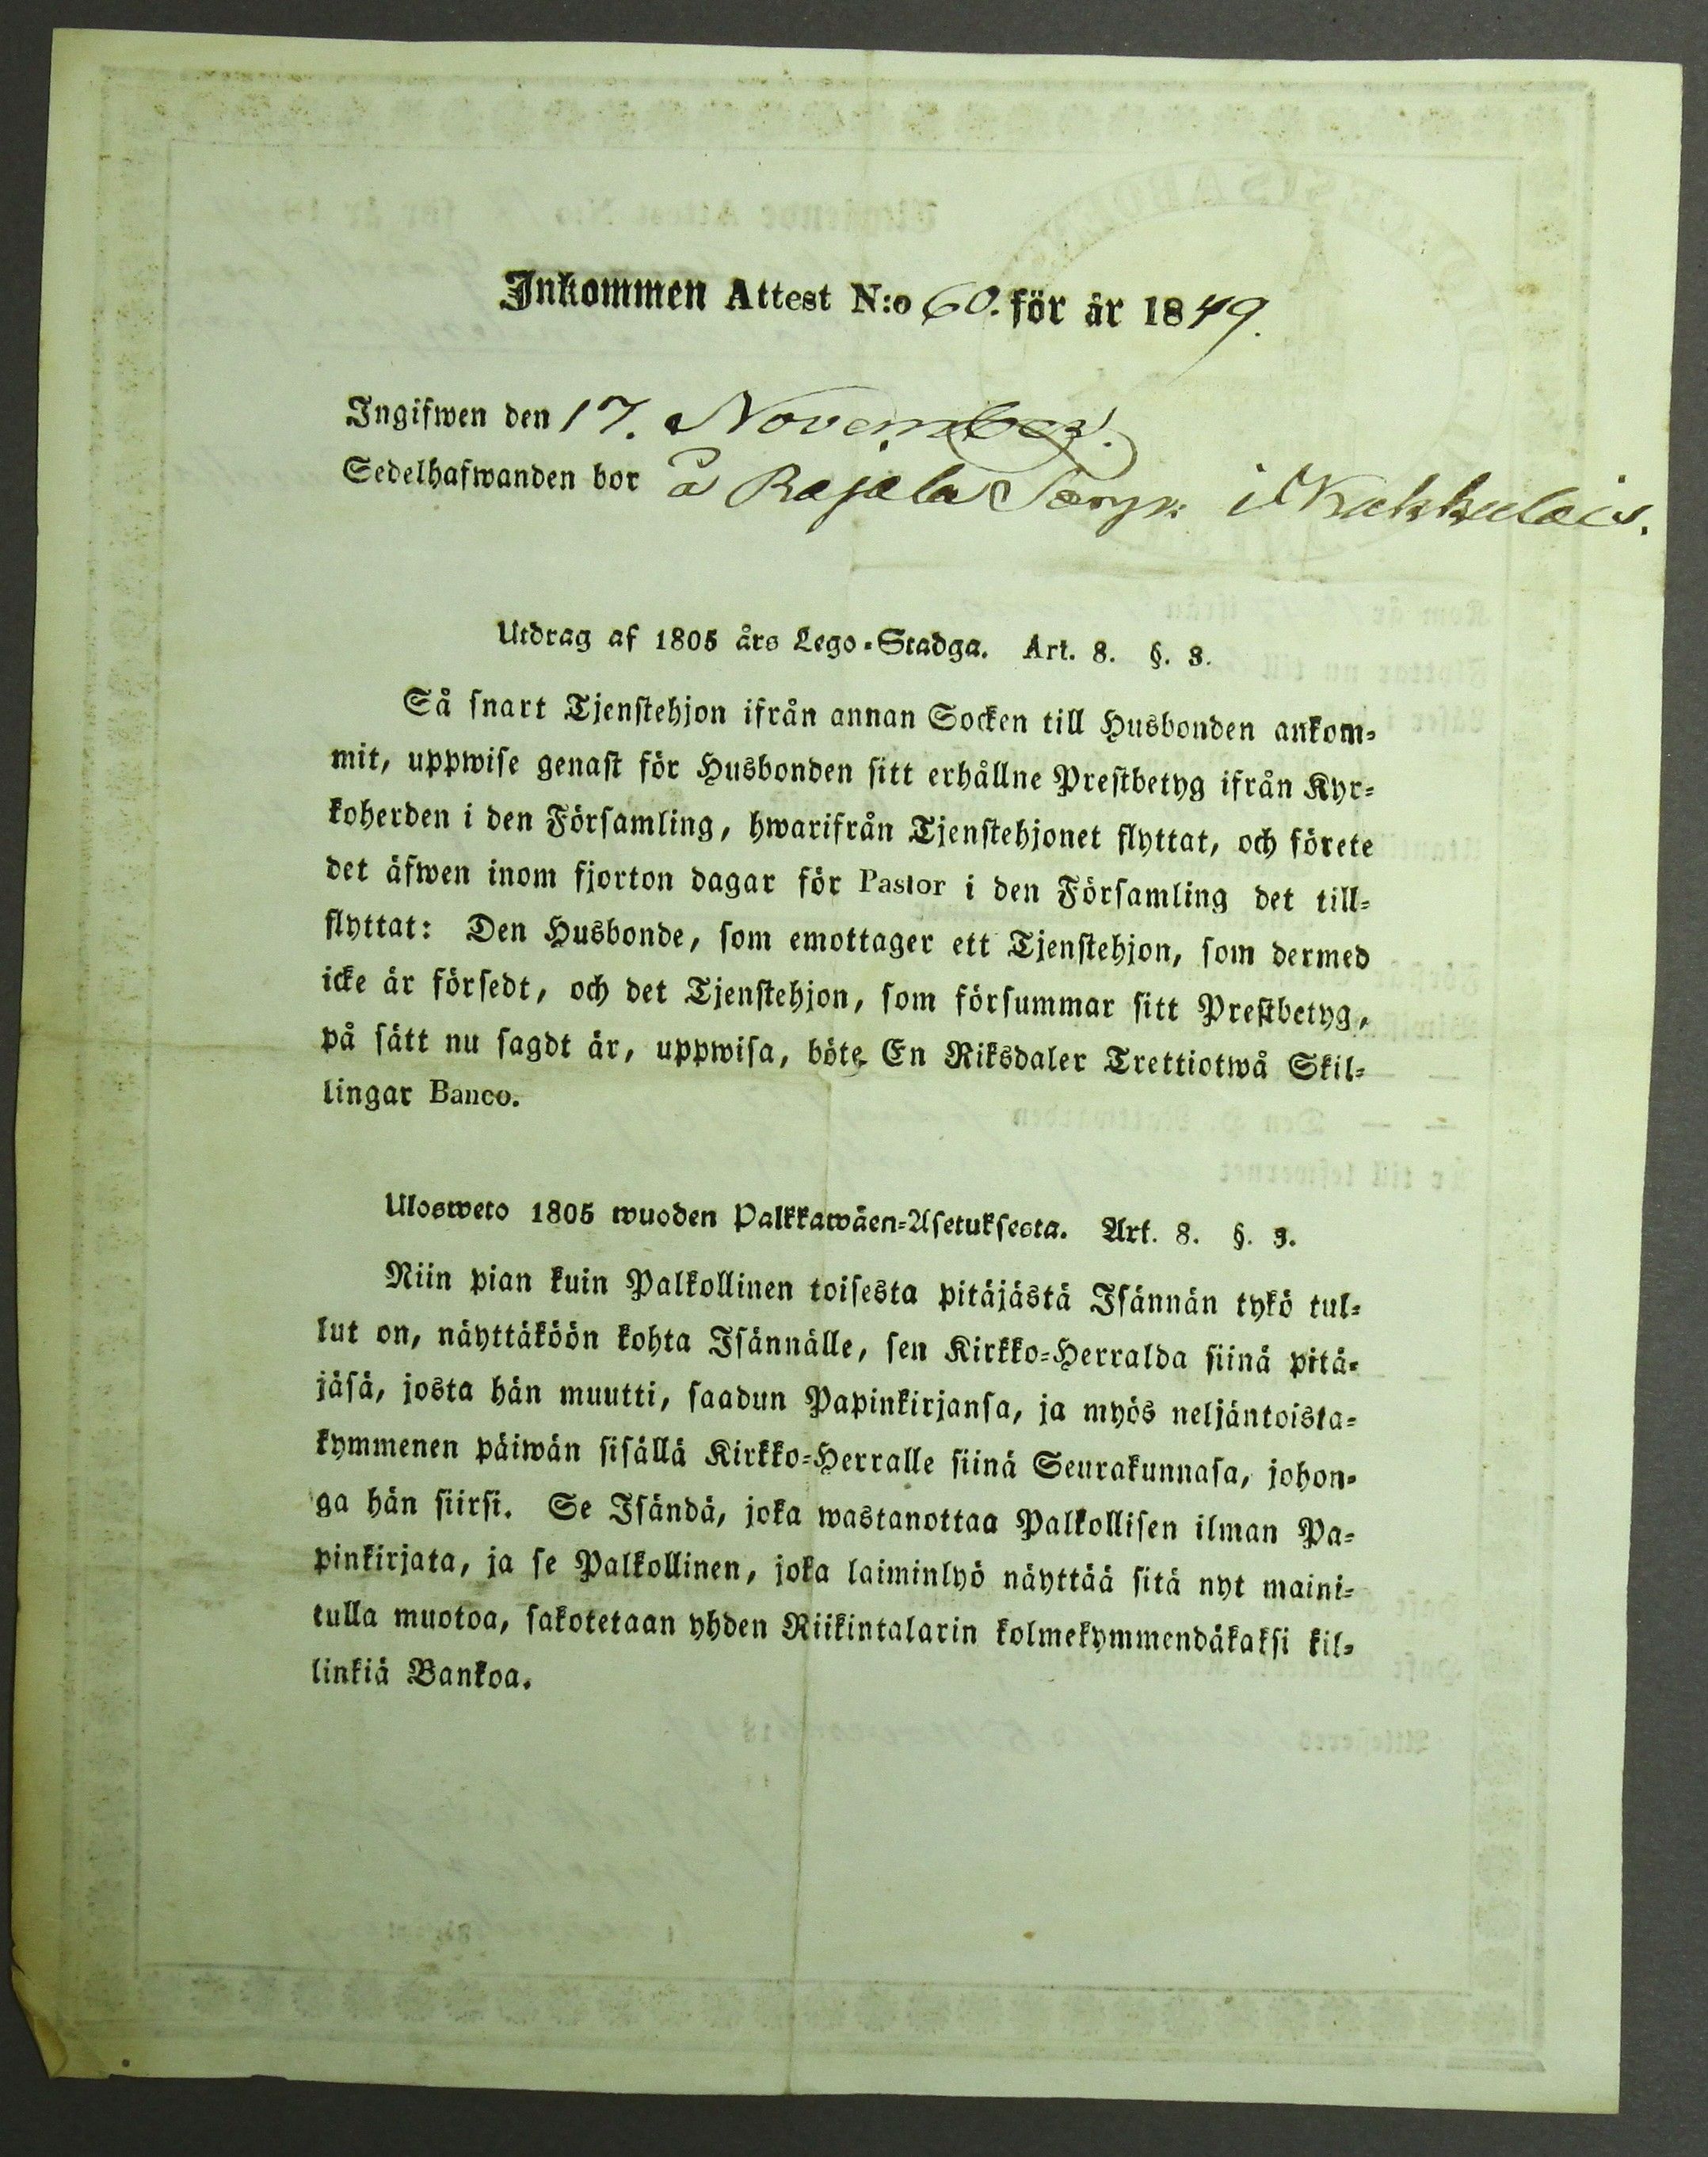 Inkommen Attest N:o 60. för år 1849.
Ingifwen den 17. November.
Sedelhafwanden bor å Rajala Torp i Kakkulais.
Utdrag af 1805 års Lego-Stadga. Art. 8. §. 3.
Så snart Tjenstehjon ifrån annan Socken till Husbonden ankom-
mit, uppwise genast för Husbonden sitt erhållne Prestbetyg ifrån Kyr-
koherden i den Församling, hwarifrån Tjenstehjonet flyttat, och förete
det äfwen inom fjorton dagar för Pastor i den Församling det till-
flyttat: Den Husbonde, som emottager ett Tjenstehjon, som dermed
icke är försedt, och det Tjenstehjon, som försummar sitt Prestbetyg,
på sätt nu sagdt är, uppwisa, böte En Riksdaler Trettiotwå Skil-
lingar Banco.
Ulosweto 1805 wuoden Palkkawäen-Asetuksesta. Art. 8. §. 3.
Niin pian kuin Palkollinen toisesta pitäjästä Isännän tykö tul-
lut on, näyttäköön kohta Isännälle, sen Kirkko-Herralda siinä pitä-
jäsä, josta hän muutti, saadun Papinkirjansa, ja myös neljäntoista-
kymmenen päiwän sisällä Kirkko-Herralle siinä Seurakunnasa, johon-
ga hän siirsi. Se Isändä, joka wastanottaa Palkollisen ilman Pa-
pinkirjata, ja se Palkollinen, joka laiminlyö näyttää sitä nyt maini-
tulla muotoa, sakotetaan yhden Riikintalarin kolmekymmendäkaksi kil-
linkiä Bankoa.